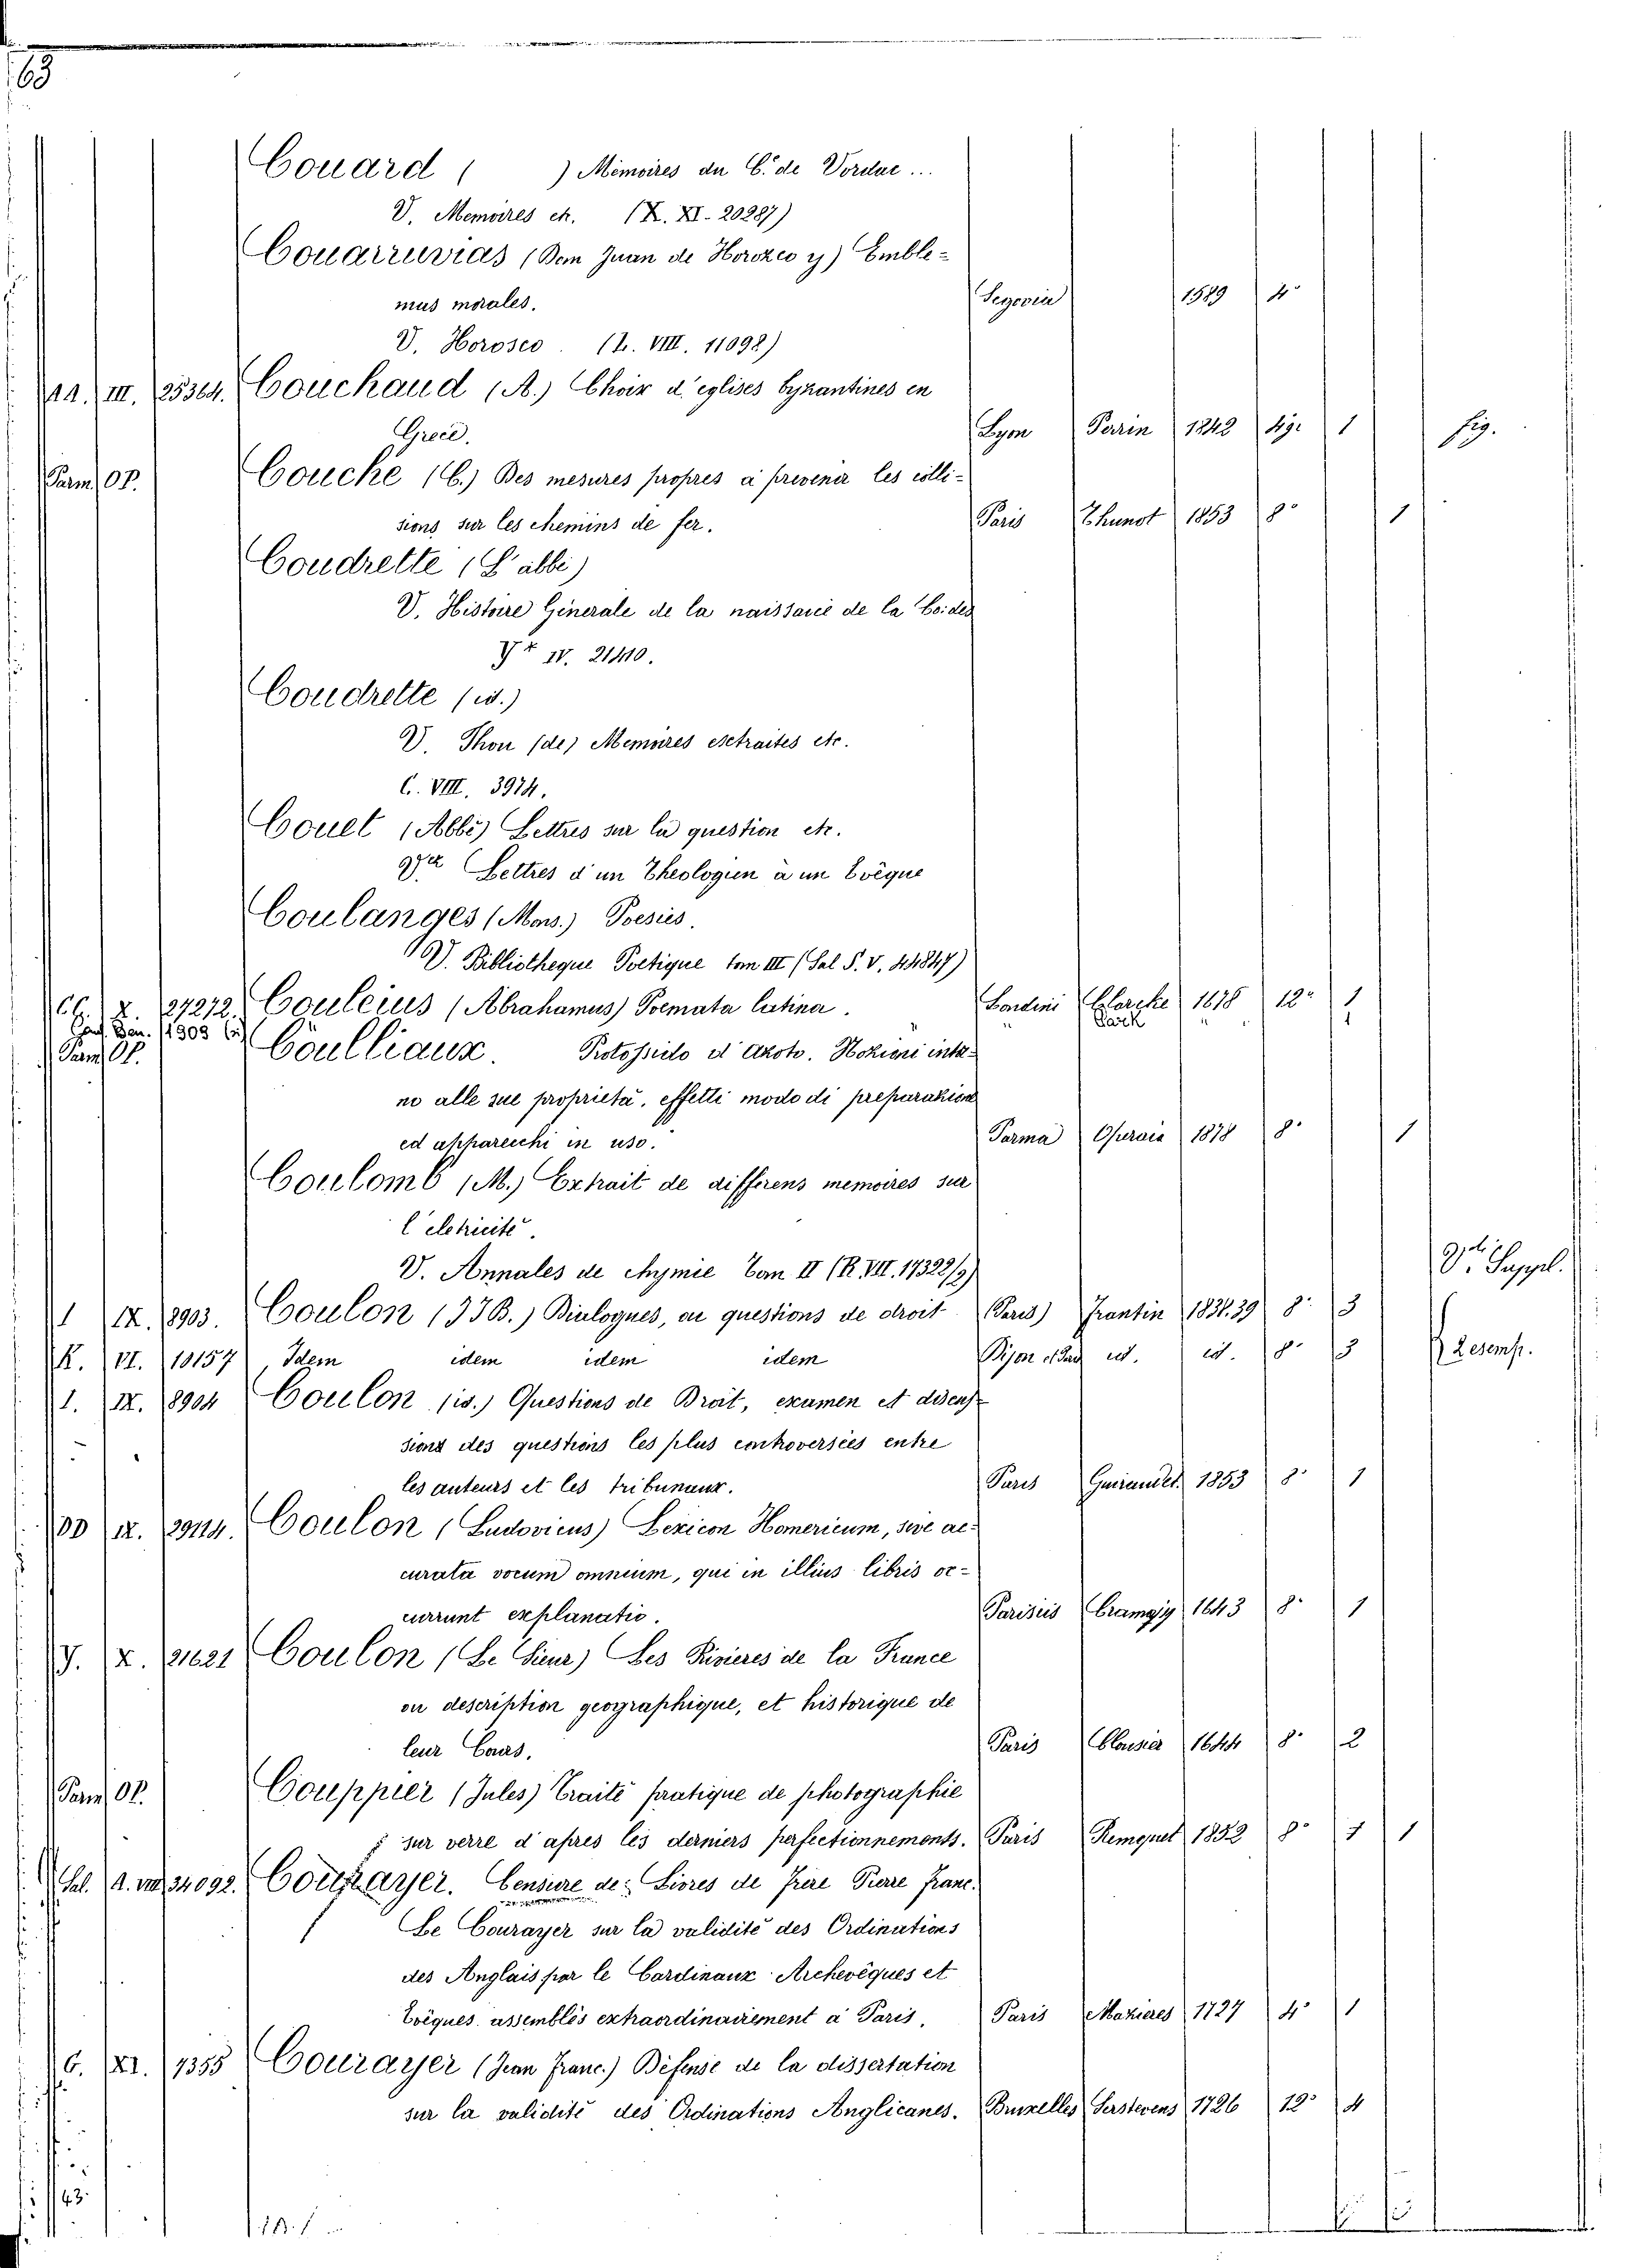 63
Couard ( ) Mémoires du C. de Vordac...
V. Memoires etc. (X. XI. 20287)
Couarruvias (Dom Juan de Horozco y) Emble-
mus morales. Segovia 1589 4°
V. Horosco. (L. VIII. 11092)
AA. III. 25364. Couchaud (A.) Choix d'eglises byzantines en
Grece. Lyon Perin 1842 fig. 1 fig.
Parm. OP. Couche (C.) Des mesures propres à prevenir les colli-
sions sur les chemins de fer. Paris Thunot 1853 8° 1
Coudrette (L'abbé)
V. Histoire Generale de la naissance de la Co: des
Y* IV. 21410.
Coudrette (id.)
V. Thou (de) Memoires extraites etc.
C. VIII. 3974.
Couet (Abbé) Lettres sur la question etc.
V. Lettres d'un Theologien à un Evèque
Coulanges (Mons.) Poesies.
V. Bibliotheque Poetique tom III (Sal S. V. 44847)
CC. X. 27272. Couleius (Abrahamus) Poemata latina. Londini Clarcke 1678 12° 1
Park " " 1
Conf. Ben. 1303
Parm OP. Coulliaux. Protossido d'azoto. Nozioni inta-
no alle sue proprietà, effetti modo di preparazione
ed apparecchi in uso. Parma Operaia 1878 8° 1
Coulomb (M.) Extrait de differens memoires sur
l'eletricité.
V. Annales de chymie Tom II (R. VII. 17322/2)
V. Suppl.
I IX. 8903. Coulon (J J B.) Dialogues, ou questions de droit Paris Frantin 1838.39 8° 3
K. VI. 10157 Idem idem idem idem Dijon id. id. 8° 3 Desemp.
I. IX. 8904 Coulon (id.) Questions de Droit, examen et discus-
sions des questions les plus controversées entre
les auteurs et les tribunaux. Paris 1853 8° 1
DD IX. 29114. Coulon (Ludovicus) Lexicon Homericum, sive ac-
curata vocum omnium, qui in illius libris oc-
currunt explanatio. Parisiis Cramoisy 1643 8° 1
Y. X. 21621 Coulon (Le Sieur) Les Rivieres de la France
ou description geographique, et historique de
leur Cours. Paris Clousier 1644 8° 2
Parm OP. Couppier (Jules) Traité pratique de photographie
sur verre d'apres les derniers perfectionnements. Paris Remquet 1852 8° 1 1
Sal. A. VIII 34092. Courayer. Censure des Livres de frere Pierre Franc.
Le Courayer sur la validité des Ordinations
des Anglais par le Cardinaux Archevèques et
Evèques assemblés extraordinairement à Paris. Paris Mazieres 1727 4° 1
C. XI. 4355 Courayer (Jean Franc.) Défense de la dissertation
sur la validité des Ordinations Anglicanes. Bruxelles Serstevens 1726 12° 4
43.